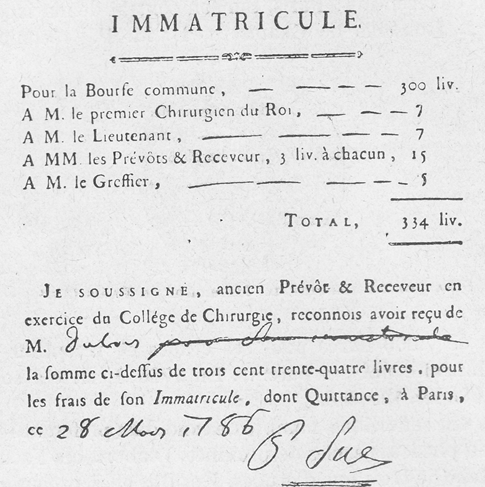 IMMATRICULE.
Pour la Bourſe commune, — — — — 300 liv.
A M. le premier Chirurgien du Roi, — — — 7
A M. le Lieutenant, — — — 7
A MM. les Prévôts & Receveur, 3 liv. à chacun, 15
A M. le Greffier, — — — 5
TOTAL, 334 liv.
JE SOUSSIGNÉ, ancien Prévôt & Receveur en
exercice du Collége de Chirurgie, reconnois avoir reçu de
M. Dubois
la ſomme ci-deſſus de trois cent trente-quatre livres, pour
les frais de ſon Immatricule, dont Quittance, à Paris,
ce 28 Mars 1786
P Sue